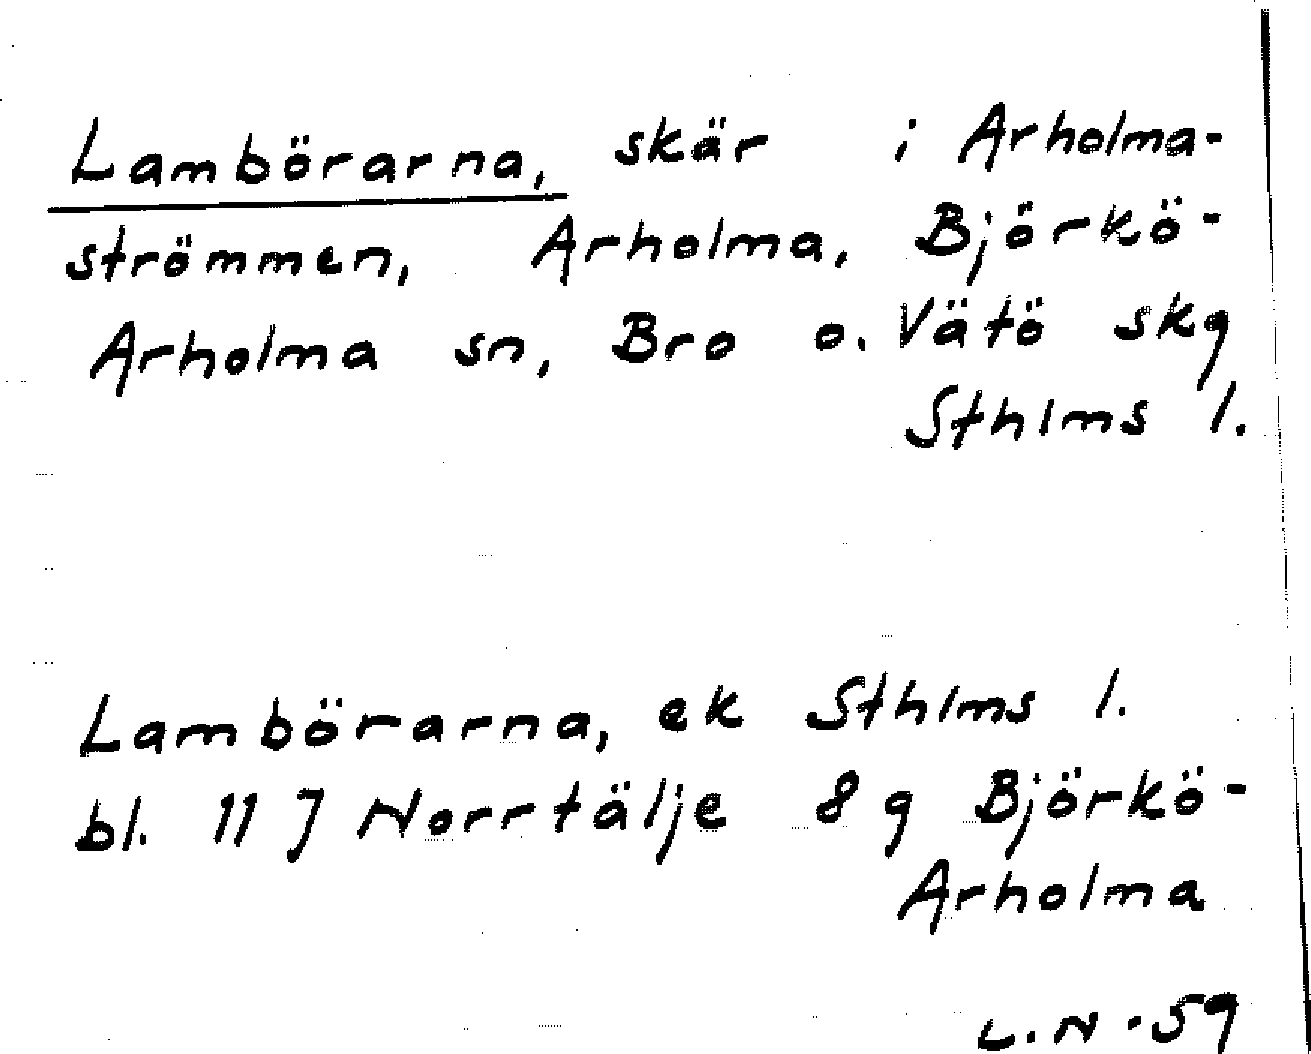 Lambörarna, skär i Arholma-
strömmen, Arholma, Björkö-
Arholma sn, Bro o. Vätö skg
Sthlms l.
Lambörarna, ek Sthlms l.
bl. 11 J Norrtälje 8 g Björkö-
Arholma
L.N -59